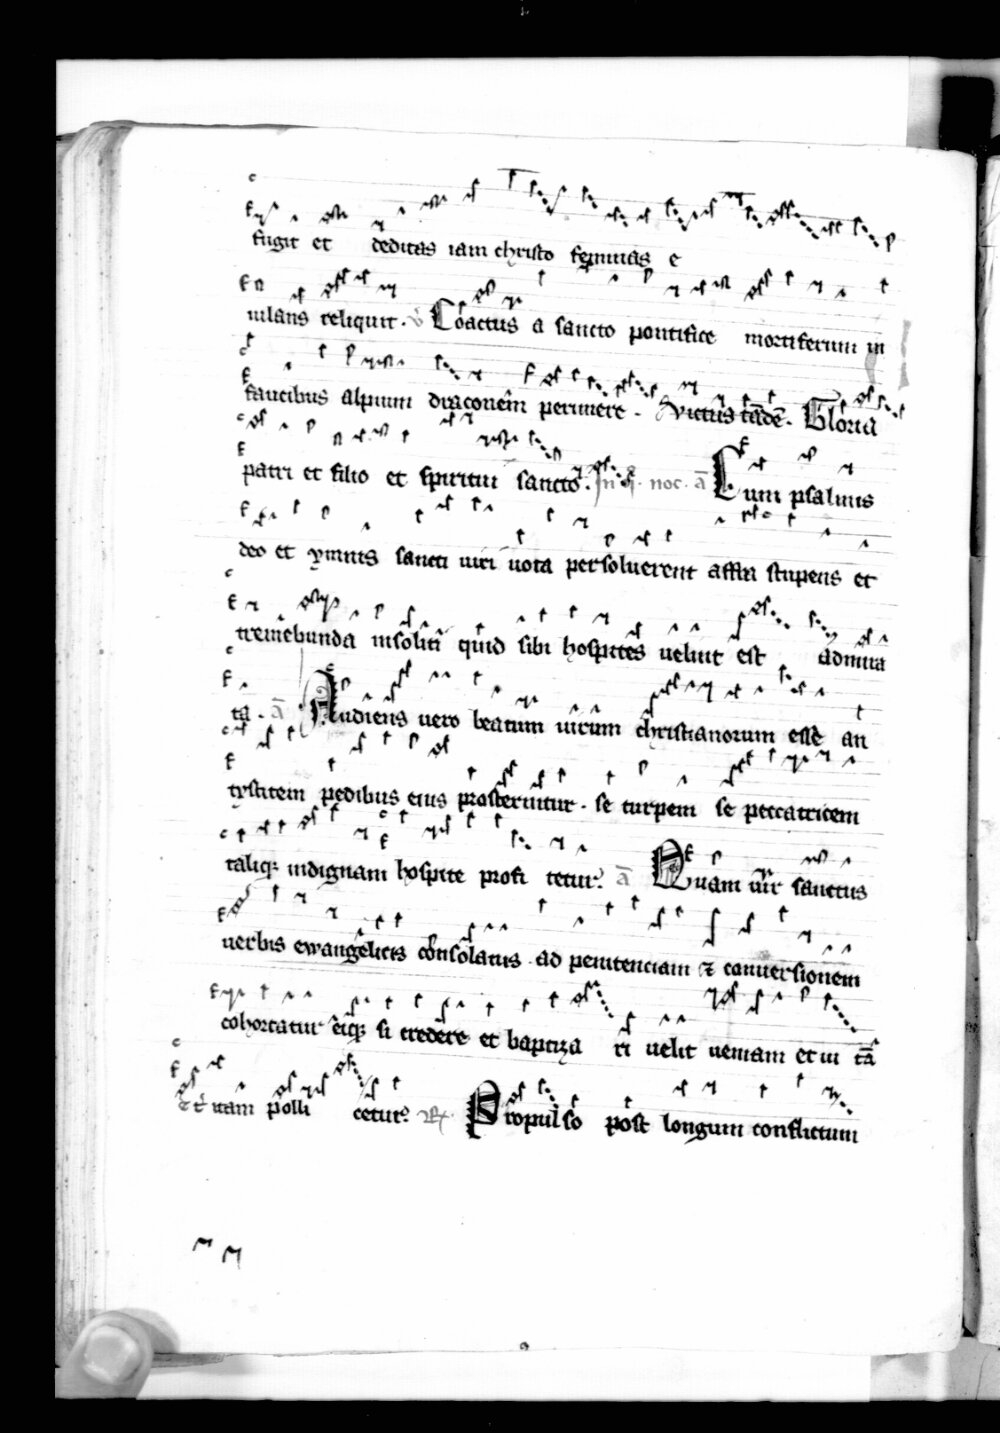 fugit et deditas iam christo feminas e
iulans reliquit. Coactus a sancto pontifice mortiferum in
faucibus alpium draconem perimere. Victus tade. Gloria
patri et filio et spiritui sancto. In noc. a Cum psalmis
deo et ymnis sancti uiri uota persoluerent affra stupens et
tremebunda insoliti quid sibi hospites uelint est admira
ta. a Audiens uero beatum uirum christianorum esse an
tystitem pedibus eius prosternitur. se turpem se peccatricem
taliq; indignam hospite profi tetur. a Quam uir sanctus
uerbis ewangelicis consolatus ad penitenciam et conuersionem
cohortatur eiq; si credere et baptiza ri uelit ueniam et ui ta
uitam polli cetur. R Propulso post longum conflictum